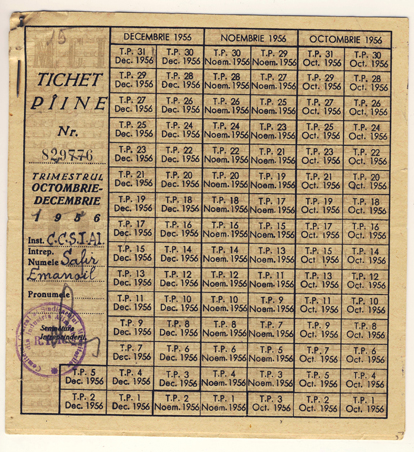 15
TICHET
PÎINE
Nr.
829776
TRIMESTRUL
OCTOMBRIE-
DECEMBRIE
1956
Inst. C.C.S.I.A.I.
Intrep.
Numele Saur
Emanoil
Pronumele
Semnătura
DECEMBRIE 1956 NOEMBRIE 1956 OCTOMBRIE 1956
T.P. 31 T.P. 30 T.P. 30 T.P. 29 T.P. 31 T.P. 30
Dec. 1956 Dec. 1956 Noem. 1956 Noem. 1956 Oct. 1956 Oct. 1956
T.P. 29 T.P. 28 T.P. 28 T.P. 27 T.P. 29 T.P. 28
Dec. 1956 Dec. 1956 Noem. 1956 Noem. 1956 Oct. 1956 Oct. 1956
T.P. 27 T.P. 26 T.P. 26 T.P. 25 T.P. 27 T.P. 26
Dec. 1956 Dec. 1956 Noem. 1956 Noem. 1956 Oct. 1956 Oct. 1956
T.P. 25 T.P. 24 T.P. 24 T.P. 23 T.P. 25 T.P. 24
Dec. 1956 Dec. 1956 Noem. 1956 Noem. 1956 Oct. 1956 Oct. 1956
T.P. 23 T.P. 22 T.P. 22 T.P. 21 T.P. 23 T.P. 22
Dec. 1956 Dec. 1956 Noem. 1956 Noem. 1956 Oct. 1956 Oct. 1956
T.P. 21 T.P. 20 T.P. 20 T.P. 19 T.P. 21 T.P. 20
Dec. 1956 Dec. 1956 Noem. 1956 Noem. 1956 Oct. 1956 Oct. 1956
T.P. 19 T.P. 18 T.P. 18 T.P. 17 T.P. 19 T.P. 18
Dec. 1956 Dec. 1956 Noem. 1956 Noem. 1956 Oct. 1956 Oct. 1956
T.P. 17 T.P. 16 T.P. 16 T.P. 15 T.P. 17 T.P. 16
Dec. 1956 Dec. 1956 Noem. 1956 Noem. 1956 Oct. 1956 Oct. 1956
T.P. 15 T.P. 14 T.P. 14 T.P. 13 T.P. 15 T.P. 14
Dec. 1956 Dec. 1956 Noem. 1956 Noem. 1956 Oct. 1956 Oct. 1956
T.P. 13 T.P. 12 T.P. 12 T.P. 11 T.P. 13 T.P. 12
Dec. 1956 Dec. 1956 Noem. 1956 Noem. 1956 Oct. 1956 Oct. 1956
T.P. 11 T.P. 10 T.P. 10 T.P. 9 T.P. 11 T.P. 10
Dec. 1956 Dec. 1956 Noem. 1956 Noem. 1956 Oct. 1956 Oct. 1956
T.P. 9 T.P. 8 T.P. 8 T.P. 7 T.P. 9 T.P. 8
Dec. 1956 Dec. 1956 Noem. 1956 Noem. 1956 Oct. 1956 Oct. 1956
T.P. 7 T.P. 6 T.P. 6 T.P. 5 T.P. 7 T.P. 6
Dec. 1956 Dec. 1956 Noem. 1956 Noem. 1956 Oct. 1956 Oct. 1956
T.P. 5 T.P. 4 T.P. 3 T.P. 4 T.P. 3 T.P. 5 T.P. 4
Dec. 1956 Dec. 1956 Dec. 1956 Noem. 1956 Noem. 1956 Oct. 1956 Oct. 1956
T.P. 2 T.P. 1 T.P. 2 T.P. 1 T.P. 3 T.P. 2 T.P. 1
Dec. 1956 Dec. 1956 Noem. 1956 Noem. 1956 Oct. 1956 Oct. 1956 Oct. 1956